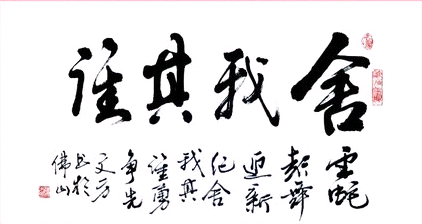 舍我其谁
蛇
起舞
迎新
纪舍
我其
谁勇
争先
书於
佛山